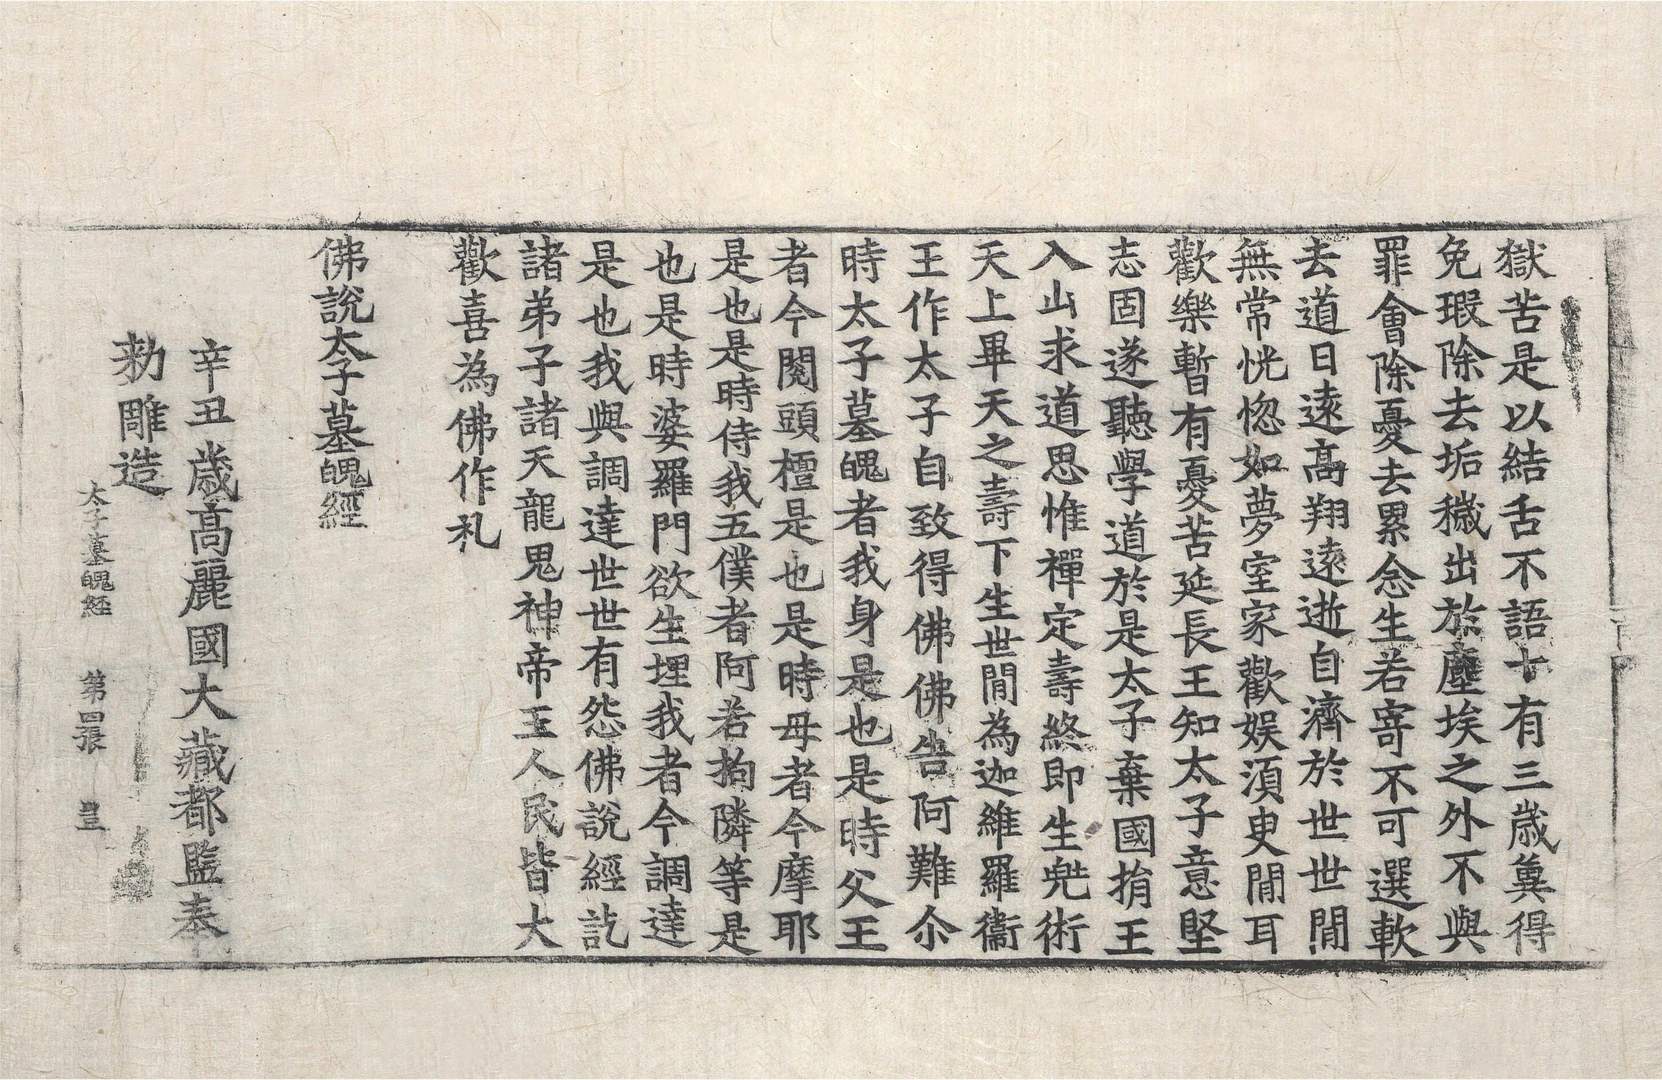 獄苦是以結舌不語十有三歲冀得
免瑕除去垢穢出於塵埃之外不與
罪會除憂去累念生若寄不可選軟
去道日遠高翔遠逝自濟於世世閒
無常恍惚如夢室家歡娛須臾閒耳
歡樂暫有憂苦延長王知太子意堅
志固遂聽學道於是太子棄國捐王
入山求道思惟禪定壽終即生兜術
天上畢天之壽下生世閒為迦維羅衞
王作太子自致得佛佛告阿難尒
時太子墓魄者我身是也是時父王
者今閱頭檀是也是時母者今摩耶
是也是時侍我五僕者阿若拘隣等是
也是時婆羅門欲生埋我者今調達
是也我與調達世世有怨佛說經訖
諸弟子諸天龍鬼神帝王人民皆大
歡喜為佛作礼
佛說太子墓魄經
辛丑歲高麗國大藏都監奉
勅雕造
太子墓魄経 第四張 豈